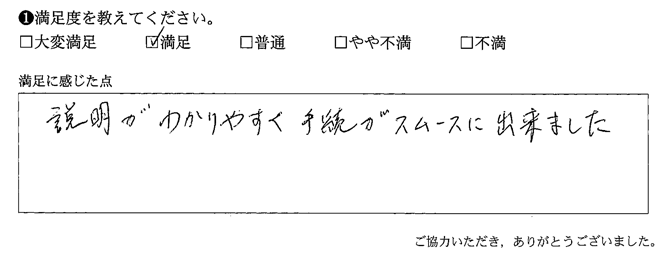 ❶満足度を教えてください。
□大変満足 ☑満足 □普通 □やや不満 □不満
満足に感じた点
説明がわかりやすく手続がスムースに出来ました
ご協力いただき，ありがとうございました。